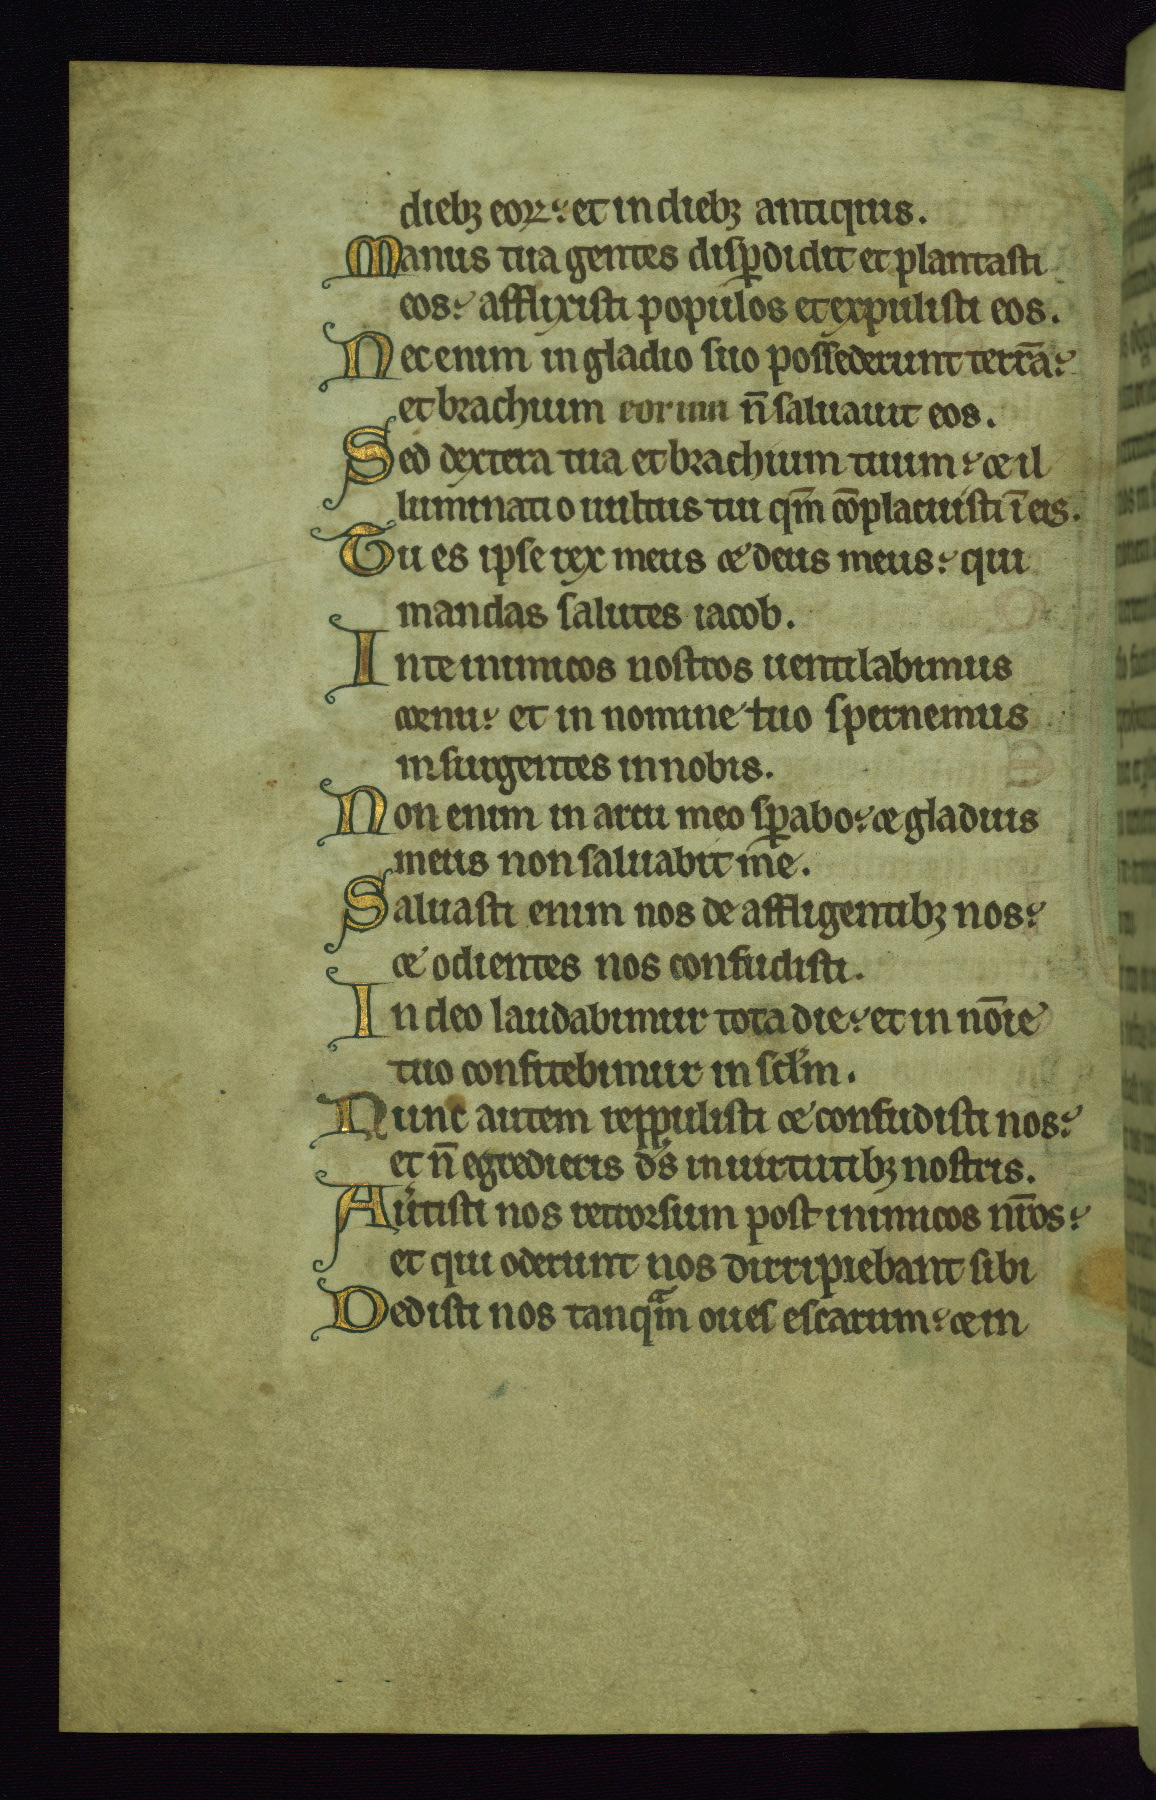 diebꝫ eoꝝ: et in diebꝫ antiquis.
Manus tua gentes disꝑdidit et plantasti
eos: afflixisti populos et expulisti eos.
Nec enim in gladio suo possederunt terrā:
et brachium eorum n̄ saluauit eos.
Sed dextera tua et brachium tuum: & il
luminatio uultus tui qm̄ cōplacuisti ī eis.
Tu es ipse rex meus & deus meus: qui
mandas salutes iacob.
In te inimicos nostros uentilabimus
cornu: et in nomine tuo spernemus
insurgentes in nobis.
Non enim in arcu meo sꝑabo: & gladius
meus non saluabit me.
Saluasti enim nos de affligentibꝫ nos:
& odientes nos confudisti.
In deo laudabimur tota die: et in noīe
tuo confitebimur in sclm̄.
Nunc autem reppulisti & confudisti nos:
et n̄ egredieris ds̄ in uirtutibꝫ nostris.
Au̓tisti nos retrorsum post inimicos nr̄os:
et qui oderunt nos dirripiebant sibi
Dedisti nos tanqᵃm oues escarum: & in